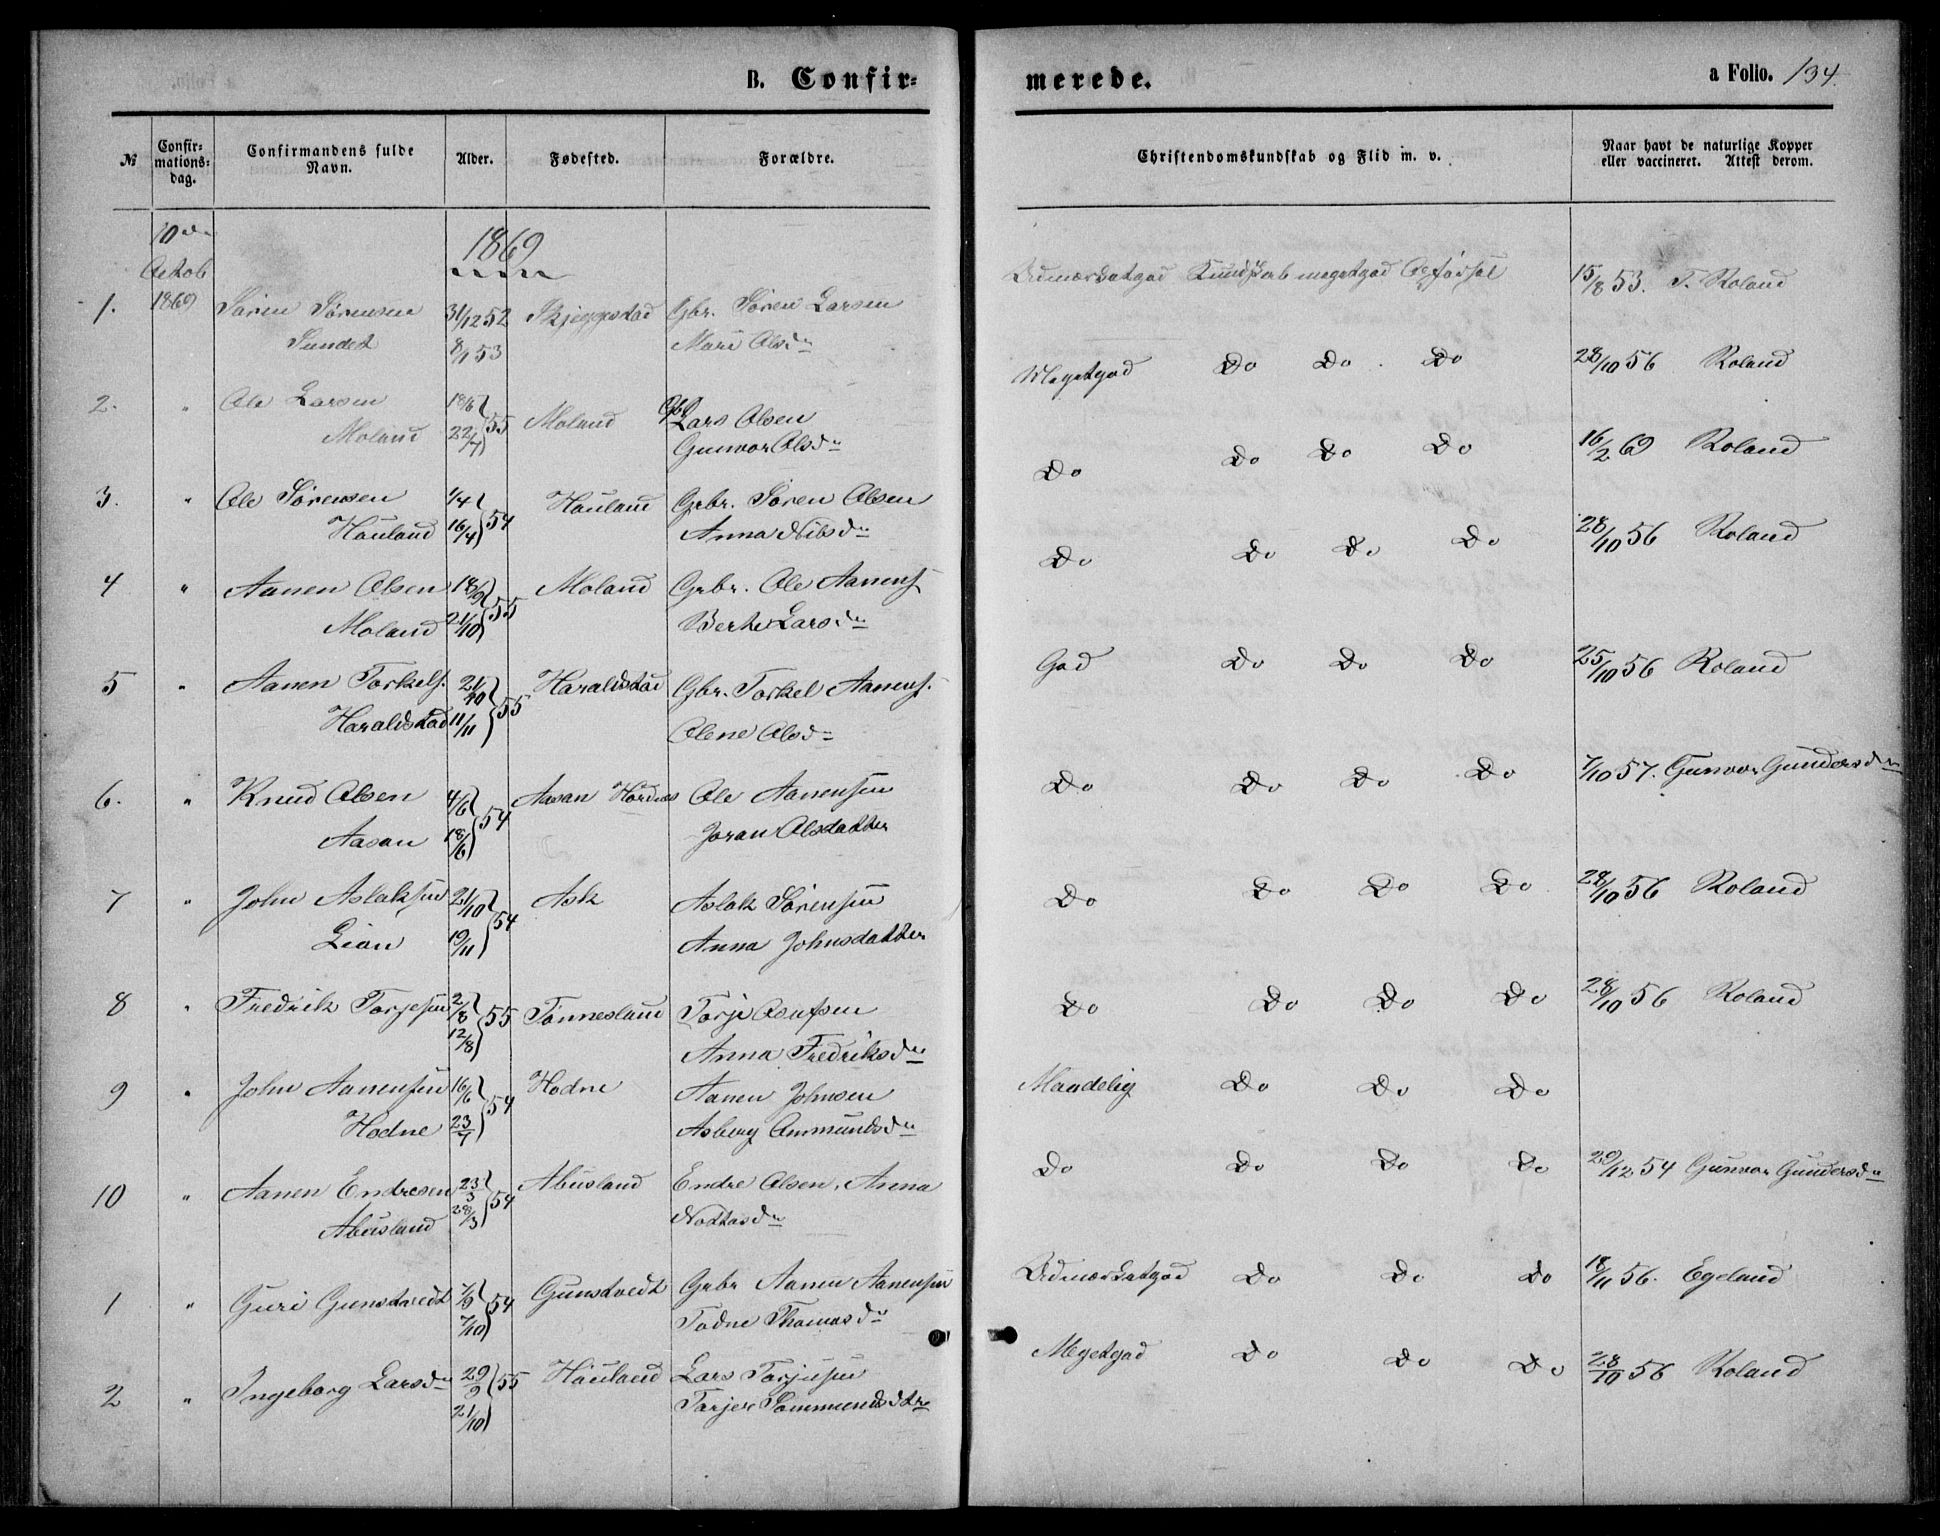 B. Confir=
merede.
a Folio. 134.
№
Confir=
mations=
dag.
Confirmandens fulde
Navn.
Alder.
Fødested.
Forældre.
Christendomskundskab og Flid m. v.
Naar havt de naturlige Kopper
eller vaccineret. Attest derom.
10de
Octob
1869
1869
1. Søren Sørensen 31/12 52 Skjeggestad Gbr. Søren Larsen
Sundet 8/1 53 Mari Olsdr
Udmærketgod Kundskab megetgod Opførsel 15/8 53. T. Roland
2. " Ole Larsen 18/6 Moland Gbr Lars Olsen
Moland 22/7 55 Gunvor Olsdr
Megetgod Do Do Do 28/10 56 Roland
3. " Ole Sørensen 1/4 Hauland Grbr. Søren Olsen
Hauland 16/4 54 Anna Nilsdr
Do Do Do Do 16/2 69 Roland
4 " Aanen Olsen 18/9 Moland Grbr. Ole Aanens.
Moland 21/10 55 Berte Larsdr
Do Do Do Do 28/10 56 Roland
5 " Aanen Torkels. 21/10 Haraldstad Gbr. Torkel Aanens.
Haraldstad 11/11 55 Olene Olsdr
God Do Do Do 25/10 56 Roland
6. " Knud Olsen 4/6 Aasan Hordnes Ole Aanensen
Aasan 18/6 54 Joran Olsdatter
Do Do Do Do 7/10 57. Gunvor Gundersdr
7 " John Aslaksen 21/10 Ask Aslak Sørensen
Lian 19/11 54 Anna Johnsdatter
Do Do Do Do 28/10 56 Roland
8 " Fredrik Torjesen 2/8 55 Tonnesland Torje Olufsen
12/8 Anna Fredriksdr
Do Do Do Do 28/10 56 Roland
9 " John Aanensen 16/6 Hodne Aanen Johnsen
Hodne 23/7 54 Asberg Ommundsdr
Maadelig Do Do Do
10 " Aanen Endresen 23/3 Abusland Endre Olsen, Anna
Abusland 28/3 54 Nottosdr
Do Do Do Do 29/12 54 Gunvor Gundersdr
1 " Guri Gunstvedt 7/9 54 Gunstvedt Grbr Aanen Aanensen
7/10 Todne Thomasdr
Udmærketgod Do Do Do 18/11 56. Egeland
2 " Ingeborg Larsdr 29/9 55 Hauland Lars Torjusen
21/10 Tarjer Tommundsdtr
Megetgod Do Do Do 28/10 56 Roland